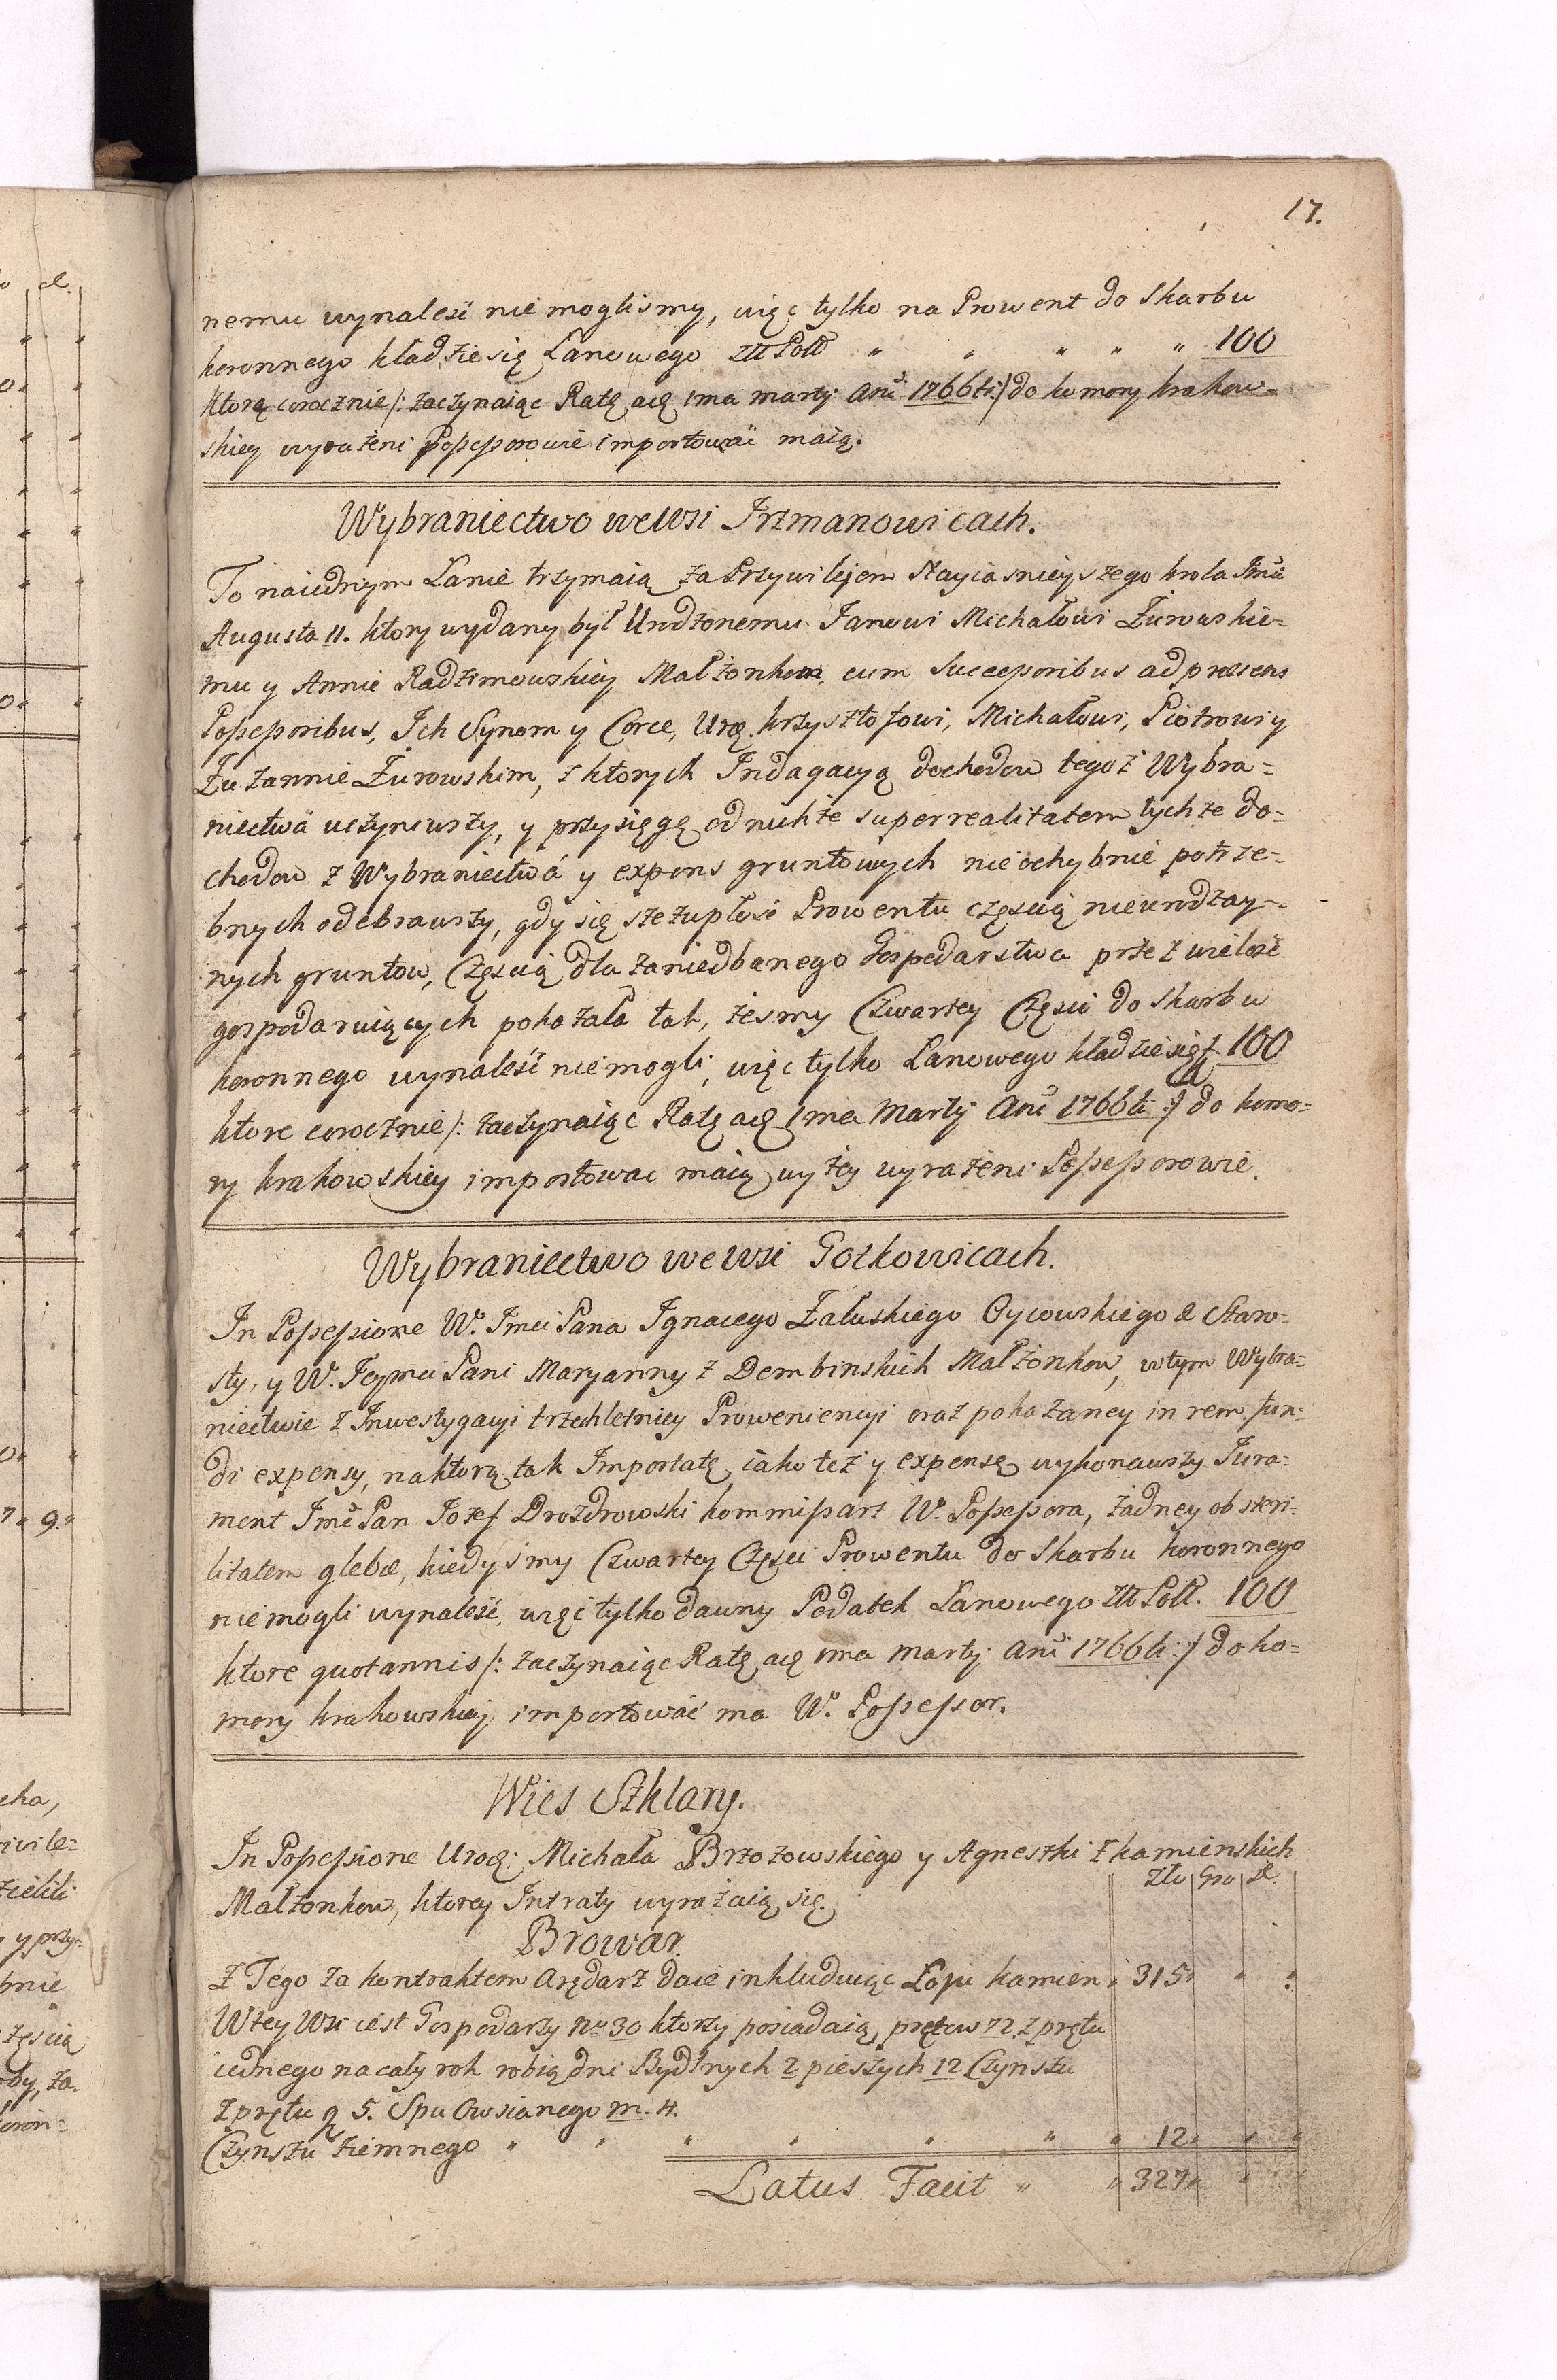 17.
nemu wynalesć nie moglismy, więc tylko na Prowent do Skarbu
koronnego kładzie się Łanowego Złł Poll " " " " " 100
ktorą corocznie /: zaczynaiąc Ratę aę 1ma martij Anni 1766ti :/ do komory krakow=
skiey wyrażeni Possessorowie importować maią.
Wybraniectwo we Wsi Jrzmanowicach.
To na iednym Łanie trzymaią za Przywilejem Nayiasnieyszego krola Jmci
Augusta II. ktory wydany był Urodzonemu Janowi Michałowi Żurowskie=
mu y Annie Radzimowskiey Małżonkom, cum Successoribus ad præsens
Possessoribus, Jch Synom y Corce, Urę. krzysztofowi, Michałowi, Piotrowi y
Zuzannie Żurowskim, z ktorych Jndagacyą dochodow tegoż Wybra=
niectwa uczyniwszy, y przysięgę od nichże super realitatem tychże do=
chodow z Wybraniectwá y expens gruntowych nieochybnie potrze=
bnych odebrawszy, gdy się szczupłość Prowentu częscią nieurodzay=
nych gruntow, Częscią dla zaniedbanego Gospodarstwa przez wielość
gospodaruiących pokazała tak, żesmy Czwartey Częsci do Skarbu
koronnego wynaleść niemogli, więc tylko Łanowego kładzie się f. 100
ktore corocznie /: zaczynaiąc Ratę aę 1ma Martij Anni 1766ti :/ do komo=
ry krakowskiey importowac maią wyżey wyrażeni Possessorowie.
Wybraniectwo we wsi Gotkowicach.
Jn Possessione W. Jmci Pana Jgnacego Załuskiego Oycowskiego & Staro=
sty, y W. Jeymci Pani Maryanny z Dembinskich Małżonkow, w tym Wybra=
niectwie z Jnwestygacyi trzechletniey Proweniencyi oraz pokazaney in rem fun=
di expensy, na ktorą tak Jmportatę iako też y expensę wykonawszy Jura=
ment Jmć Pan Jozef Drozdrowski kommissarz W. Possessora, żadney ob steri=
litatem glebæ, kiedyśmy Czwartey Częsci Prowentu do Skarbu koronnego
niemogli wynaleść, więc tylko dawny Podatek Łanowego Złł Poll. 100
ktore quotannis /: zaczynaiąc Ratę aę 1ma Martij Anni 1766ti :/ do ko=
mory krakowskiej importować ma W. Possessor.
Wies Szklary.
Jn Possessione Urodz: Michała Brzozowskiego y Agneszki z kamienskich
Małżonkow, ktorey Jntraty wyrażaią się.
Zło Gro d.
Browar.
Z Tego za kontraktem Arędarz daie inkluduiąc Łoiu kamien " 315 " "
W tey Wsi iest Gospodarzy Nro 30 ktorzy posiadaią prętow 72, z prętu
iednego na cały rok robią dni Bydlnych 2 pieszych 12 Czynszu
z prętu g 5. Spu Owsianego m. 4.
Czynszu ziemnego " " " " " " " 12 " "
Latus Facit " " 327 " "